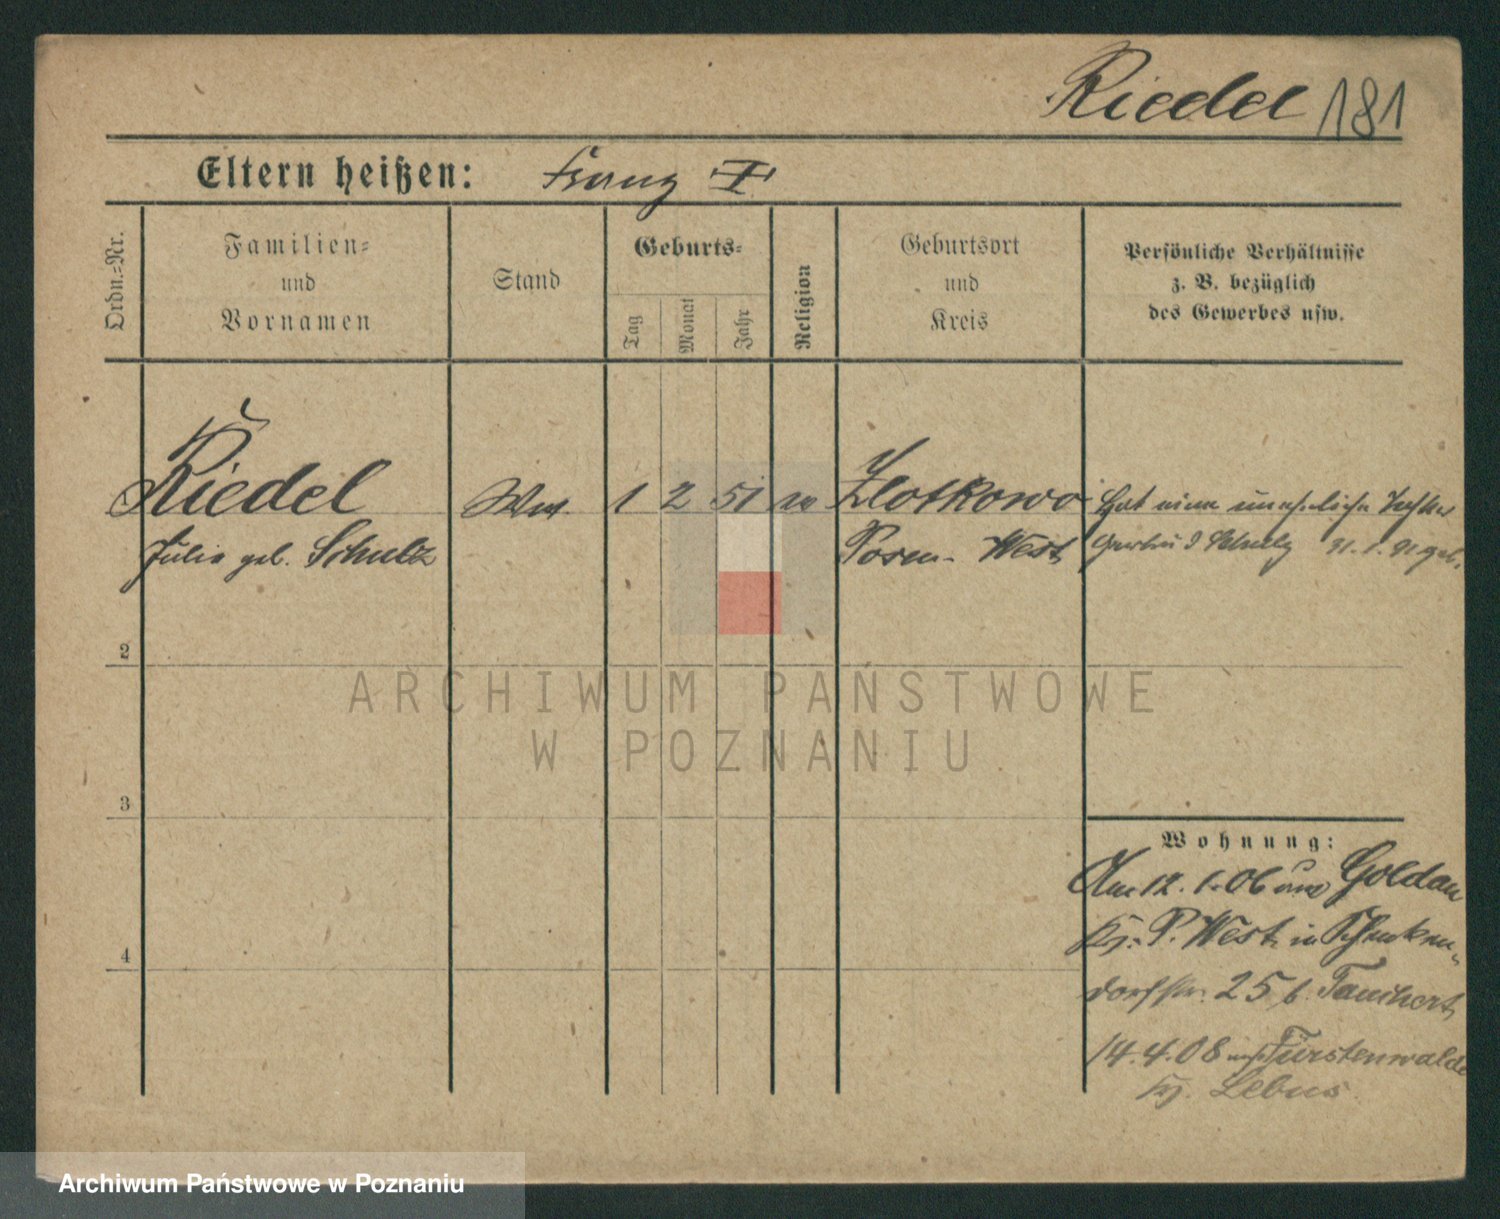 Riedel 181
Eltern heißen: Franz
Ordn.-Nr.
Familien-
und
Vornamen
Stand
Geburts-
Tag
Monat
Jahr
Religion
Geburtsort
und
Kreis
Persönliche Verhältnisse
z. B. bezüglich
des Gewerbes usw.
Riedel Ww. 1 2 51 Zlotkowo Hat eine uneheliche Tochter
Julie geb. Schulz Posen-West Gertrud Schulz 91 geb.
2
ARCHIWUM PAŃSTWOWE
W POZNANIU
3
Wohnung:
Am 12. 1. 06 von Goldau
Kr. P. West in Schenken-
4
dorfstr. 25 b.
14.4.08 nach Fürstenwalde
Kr. Lebus
Archiwum Państwowe w Poznaniu